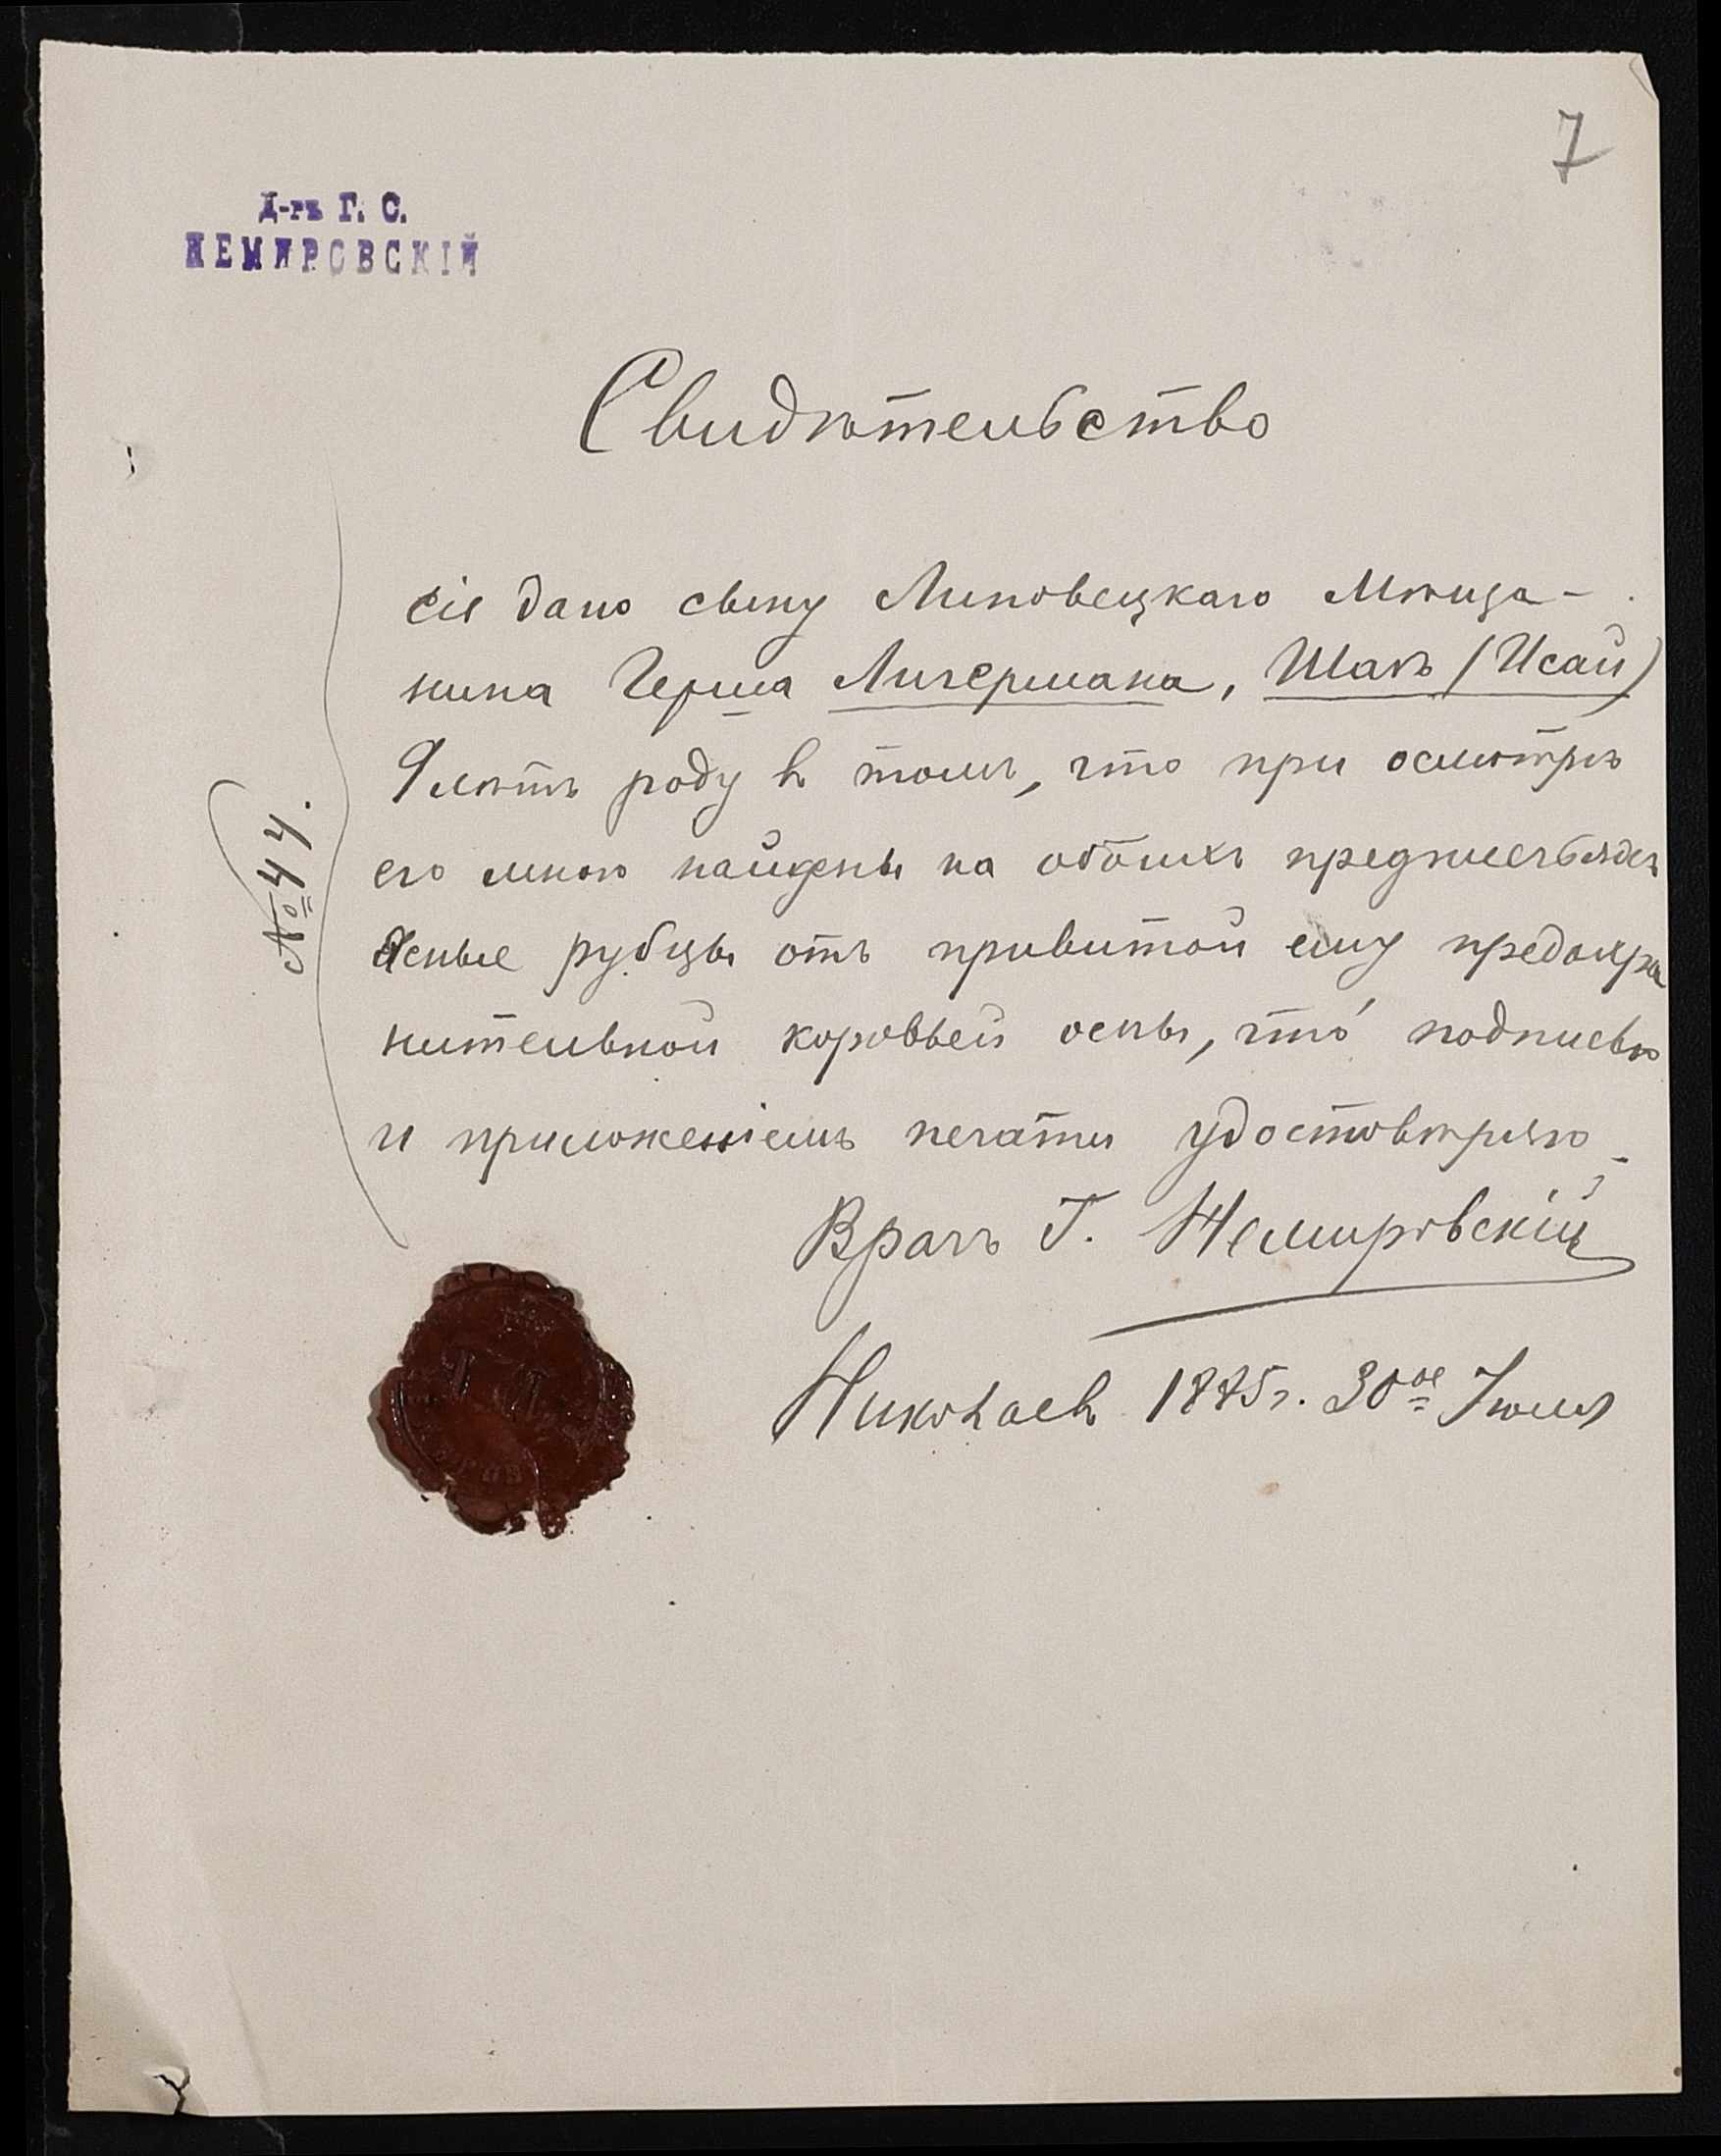 7
Д-ръ Г. С.
НЕМИРОВСКІЙ
Свидѣтельство
сіе дано сыну Липовецкаго Мѣща-
нина Герша Лигермана, (Исаи)
9 лѣтъ роду въ томъ, что при осмотрѣ
его мною найдены на обѣихъ предплечьяхъ
Ясные рубцы отъ привитой ему предохра
нительной коровьей оспы, что подписью
и приложеніемъ печати удостовѣряю
№ 44.
Врачъ Г. Немировскій
Николаевъ 1885г. 30ое